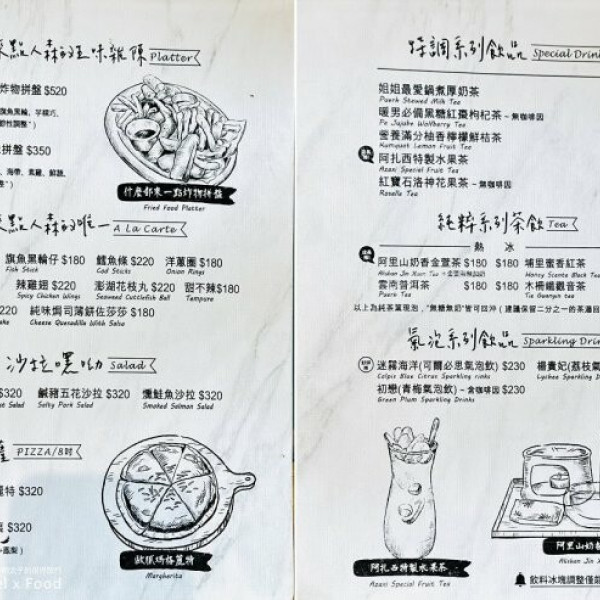 點人森的五味雜陳 Platter
炸物拼盤 $520
旗魚黑輪、芋粿巧、
拼盤 $350
、海帶、素雞、鮮蔬、
什麼都來一點炸物拼盤
Fried Food Platter
點人森的唯一 A La Carte
旗魚黑輪仔 $180 鱈魚條 $220 洋蔥圈 $180
Fish Stick Cod Sticks Onion Rings
辣雞翅 $220 澎湖花枝丸 $220 甜不辣$180
Spicy Chicken Wings Seaweed Cuttlefish Ball Tampura
$220 純味焗司薄餅佐莎莎 $180
Cheese Quesadilla With Salsa
沙拉嘿呦 Salad
$320 鹹豬五花沙拉 $320 燻鮭魚沙拉 $320
Salad Salty Pork Salad Smoked Salmon Salad
PIZZA/8吋
特 $320
$320
歐風瑪格麗特
Margherita
x Food
特調系列飲品 Special Drin
姐姐最愛鍋煮厚奶茶
Puerh Stewed Milk Tea
暖男必備黑糖紅棗枸杞茶 - 無咖啡因
Pe Jujube Wolfberry Tea
營養滿分柚香檸檬鮮桔茶
Kumquat Lemon Fruit Tea
阿扎西特製水果茶
Azasi Special Fruit Tea
紅寶石洛神花果茶 - 無咖啡因
Roselle Tea
純粹系列茶飲 Tea
熱 冰
阿里山奶香金萱茶 $180 $180 埔里蜜香紅茶
Alishan Jin Xuan Tea Honey Scente Black Te
雲南普洱茶 $180 $180 木柵鐵觀音茶
Puerh Tea Tie Guanyin tea
以上為純茶葉現泡，"無糖無奶"皆可回沖 (建議保留二分之一的茶湯回
氣泡系列飲品 Sparkling Drin
迷霧海洋(可爾必思氣泡飲) $230 楊貴妃(荔枝氣
Calpis Blue Citrus Sparkling rinks Lychee Sparkling D
初戀(青梅氣泡飲) - 無咖啡因 $230
Green Plum Sparkling Drinks
阿扎西特製水果茶
Azasi Special Fruit Tea
阿里山奶
Alishan Jin X
飲料冰塊調整僅